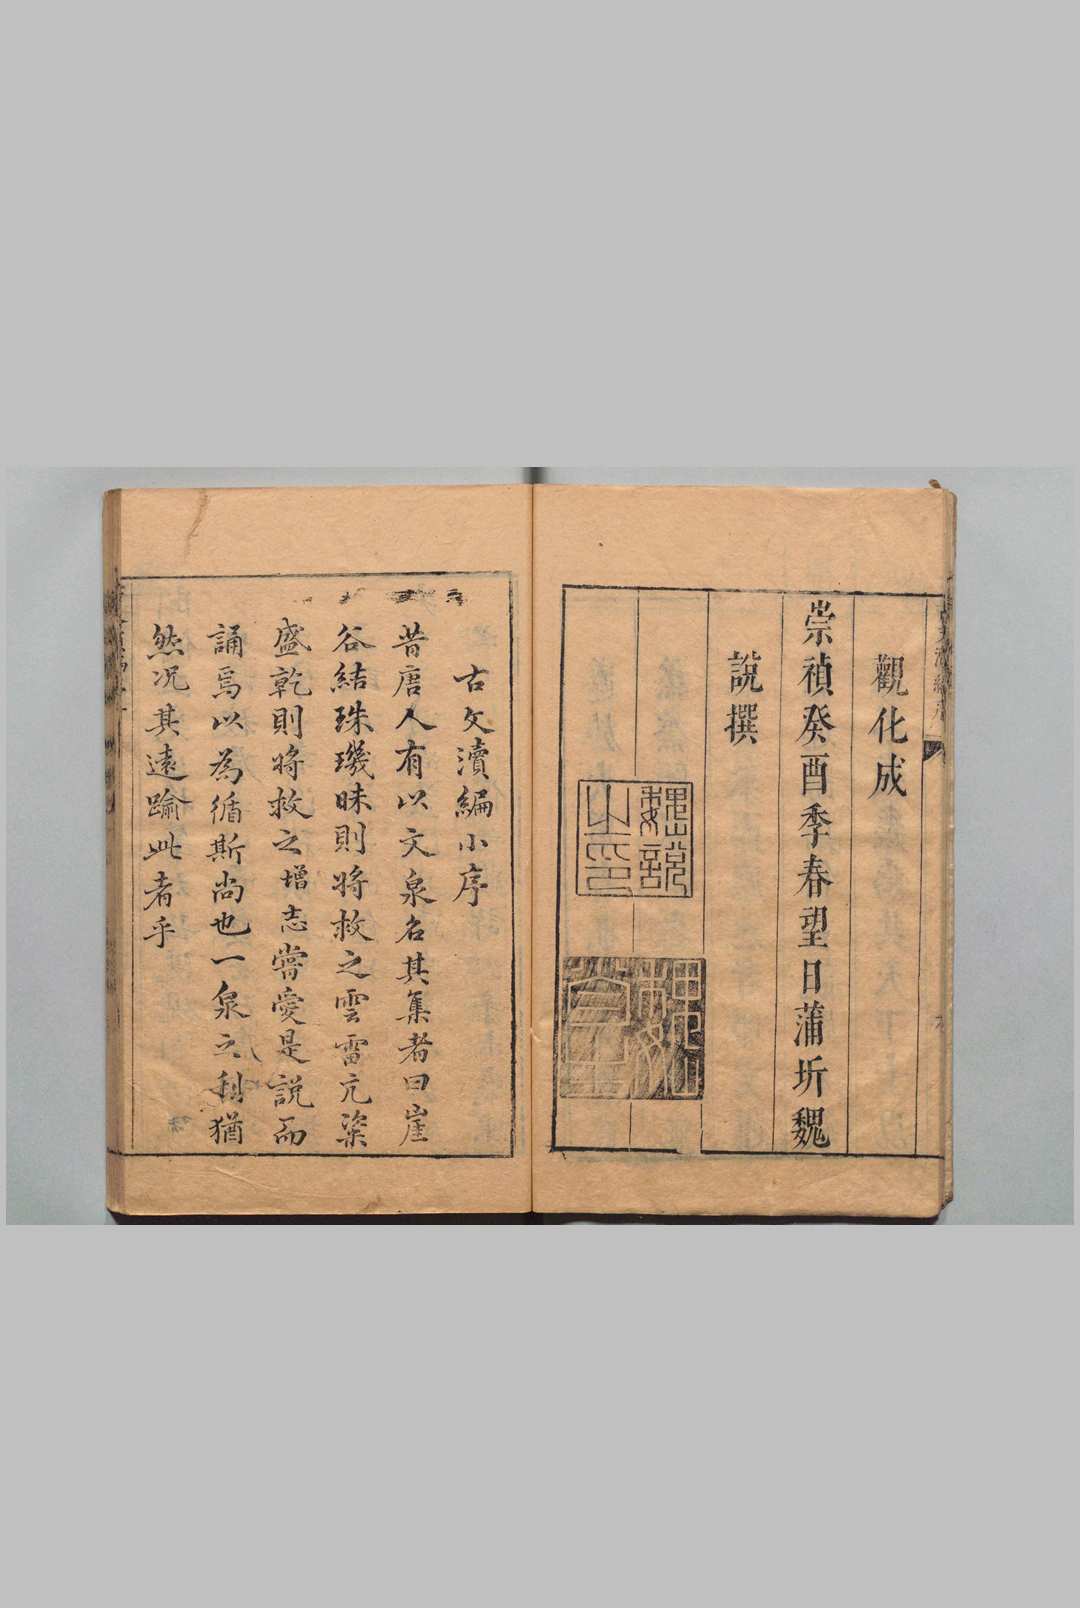 觀化成
崇禎癸酉季春望日蒲圻魏
說撰
魏說
之印
古文瀆編小序
昔唐人有以文泉名其集者曰崖
谷結珠璣昧則將救之雲雷亢粢
盛乾則將救之增志嘗愛是說而
誦焉以為循斯尚也一泉之利猶
然况其遠踰此者乎